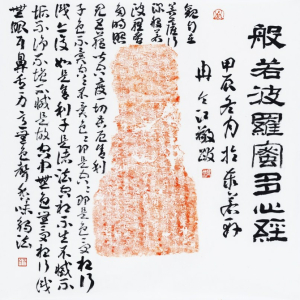 般若波羅蜜多心經
甲辰冬月
冉令江敬
觀自在
菩薩行
深般若
波羅蜜
多時照
見五蘊皆空度一切苦厄舍利
子色不異空空不異色色即是空空即是色受想行
識亦復如是舍利子是諸法空相不生不滅不
垢不淨不增不減是故空中無色無受想行識
無眼耳鼻舌身意無色聲香味觸法